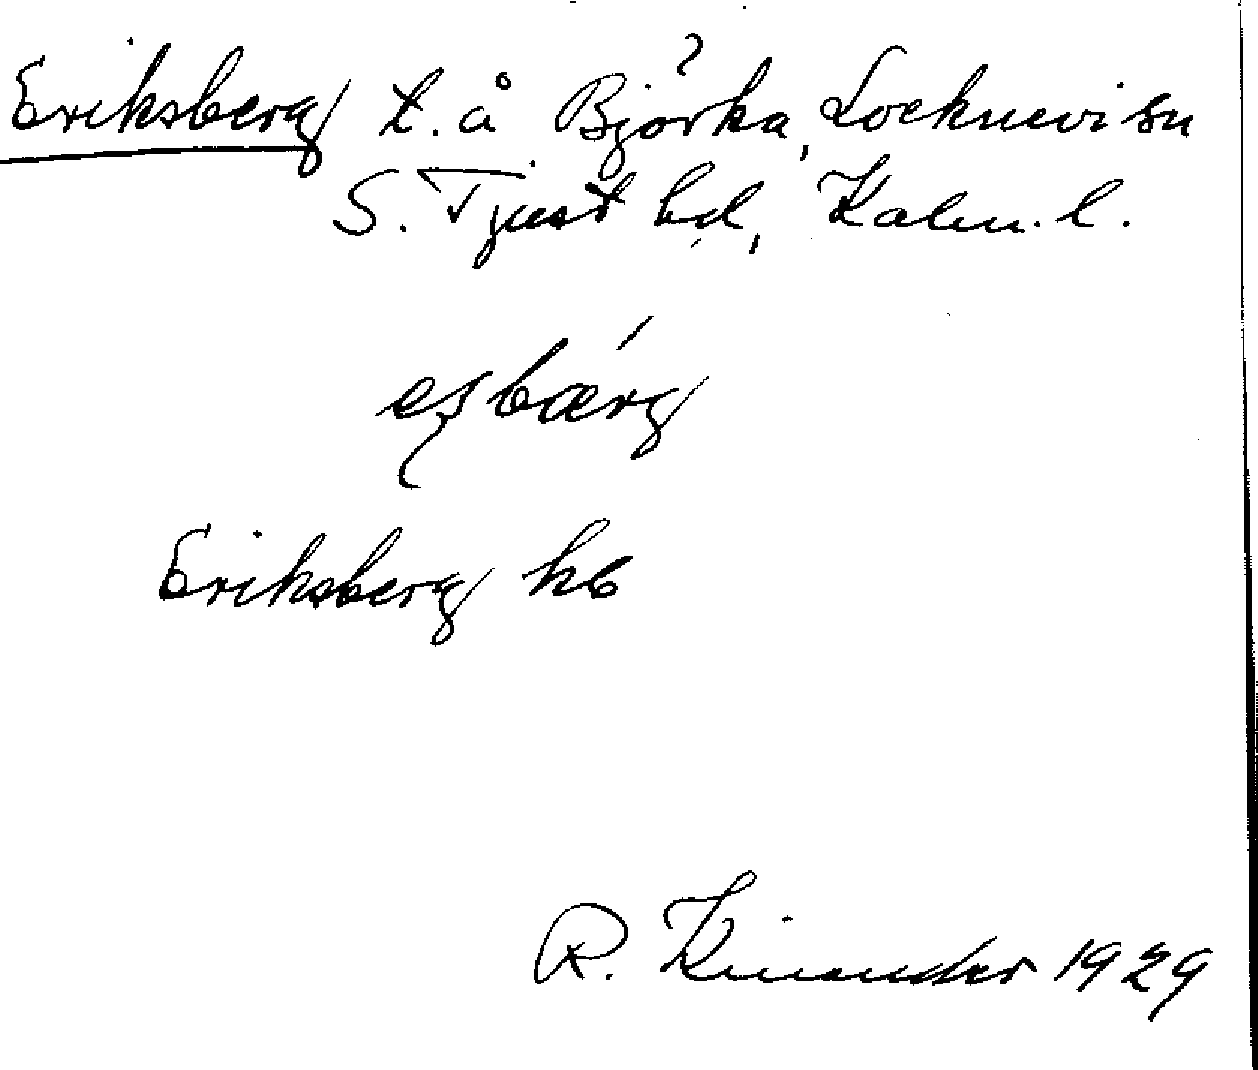 Eriksberg t. å Björka, Locknevi sn
S. Tjust hd, Kalm. l.
Eriksberg hb
R. Kinander 1929